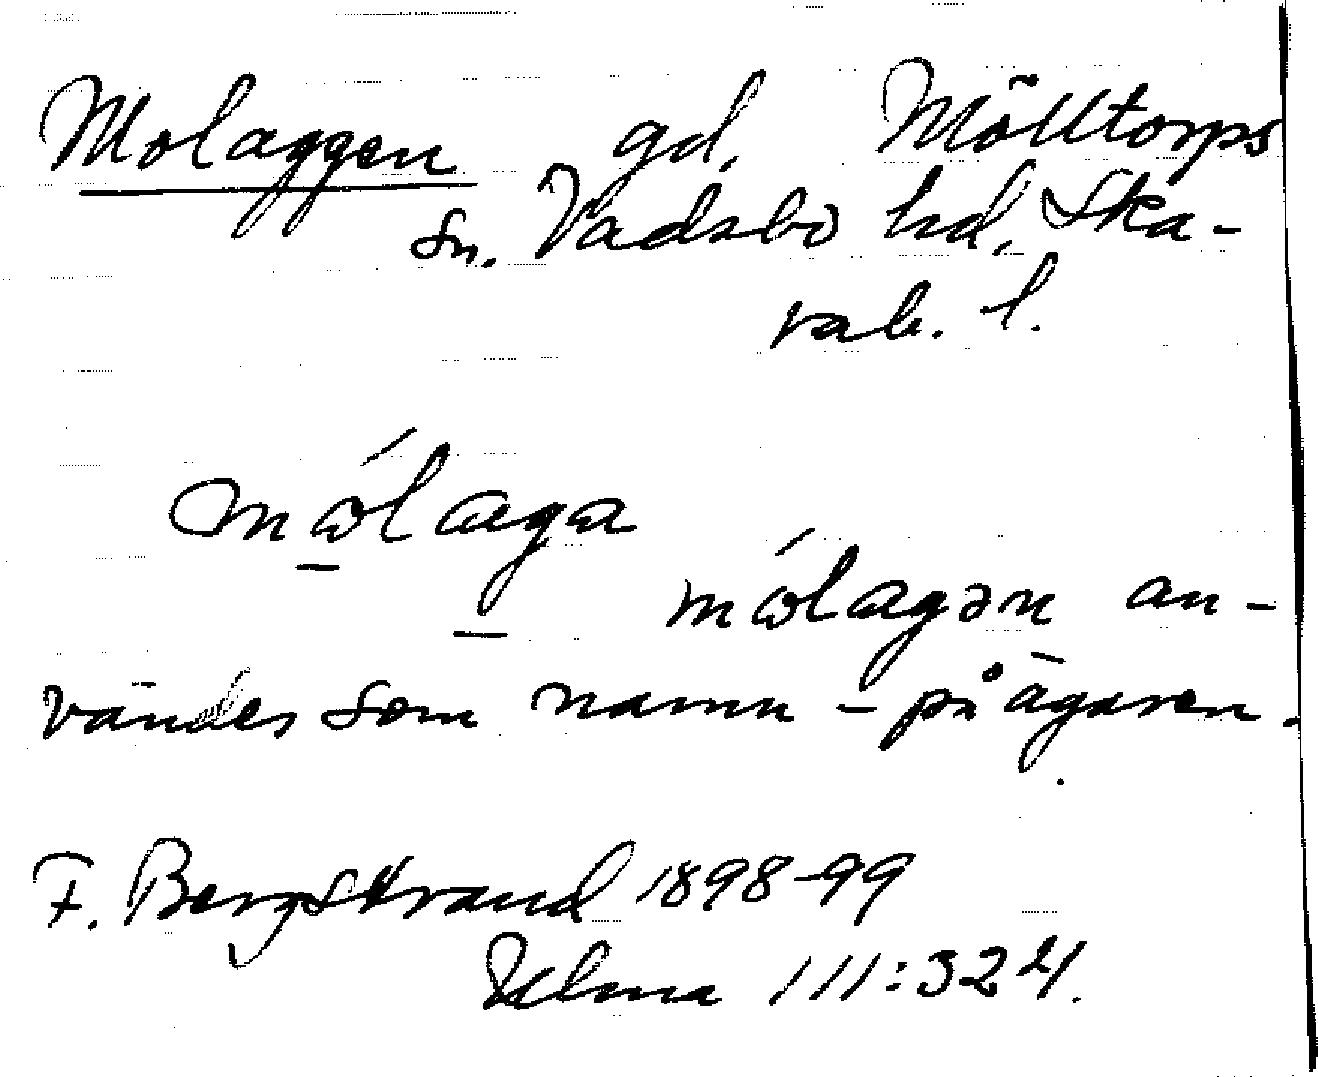 Molaggen gd, Mölltorps
sn. Vadsbo hd, Ska-
rab. l.
mólaga
mólagən an-
vändes som namn - på ägaren.
F. Bergstrand 1898-99
Ulma 111:324.